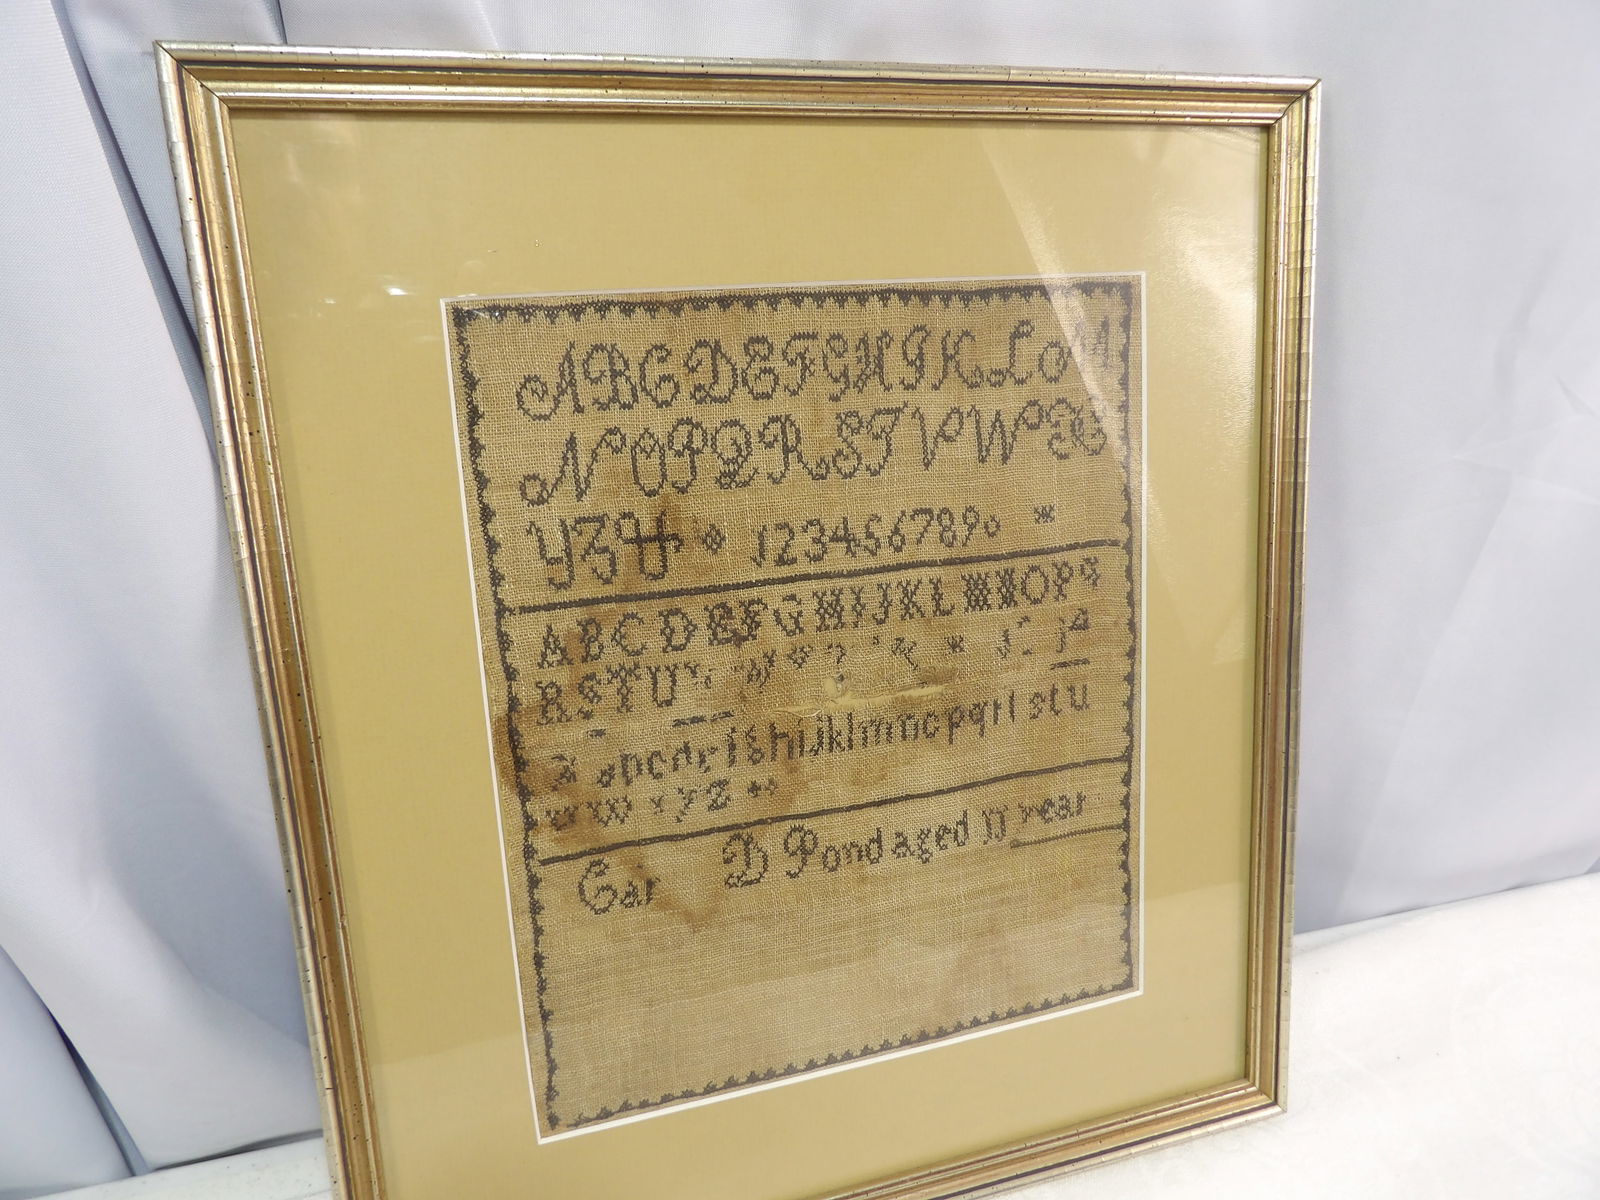 A B C D E F G H I K L M
N O P Q R S T V W X
Y Z & 1 2 3 4 5 6 7 8 9 0
A B C D E F G H I J K L M N O P Q
R S T U
a b c d e f g h i j k l m n o p q r s t u
v w x y z
Car D Pond aged 11 year